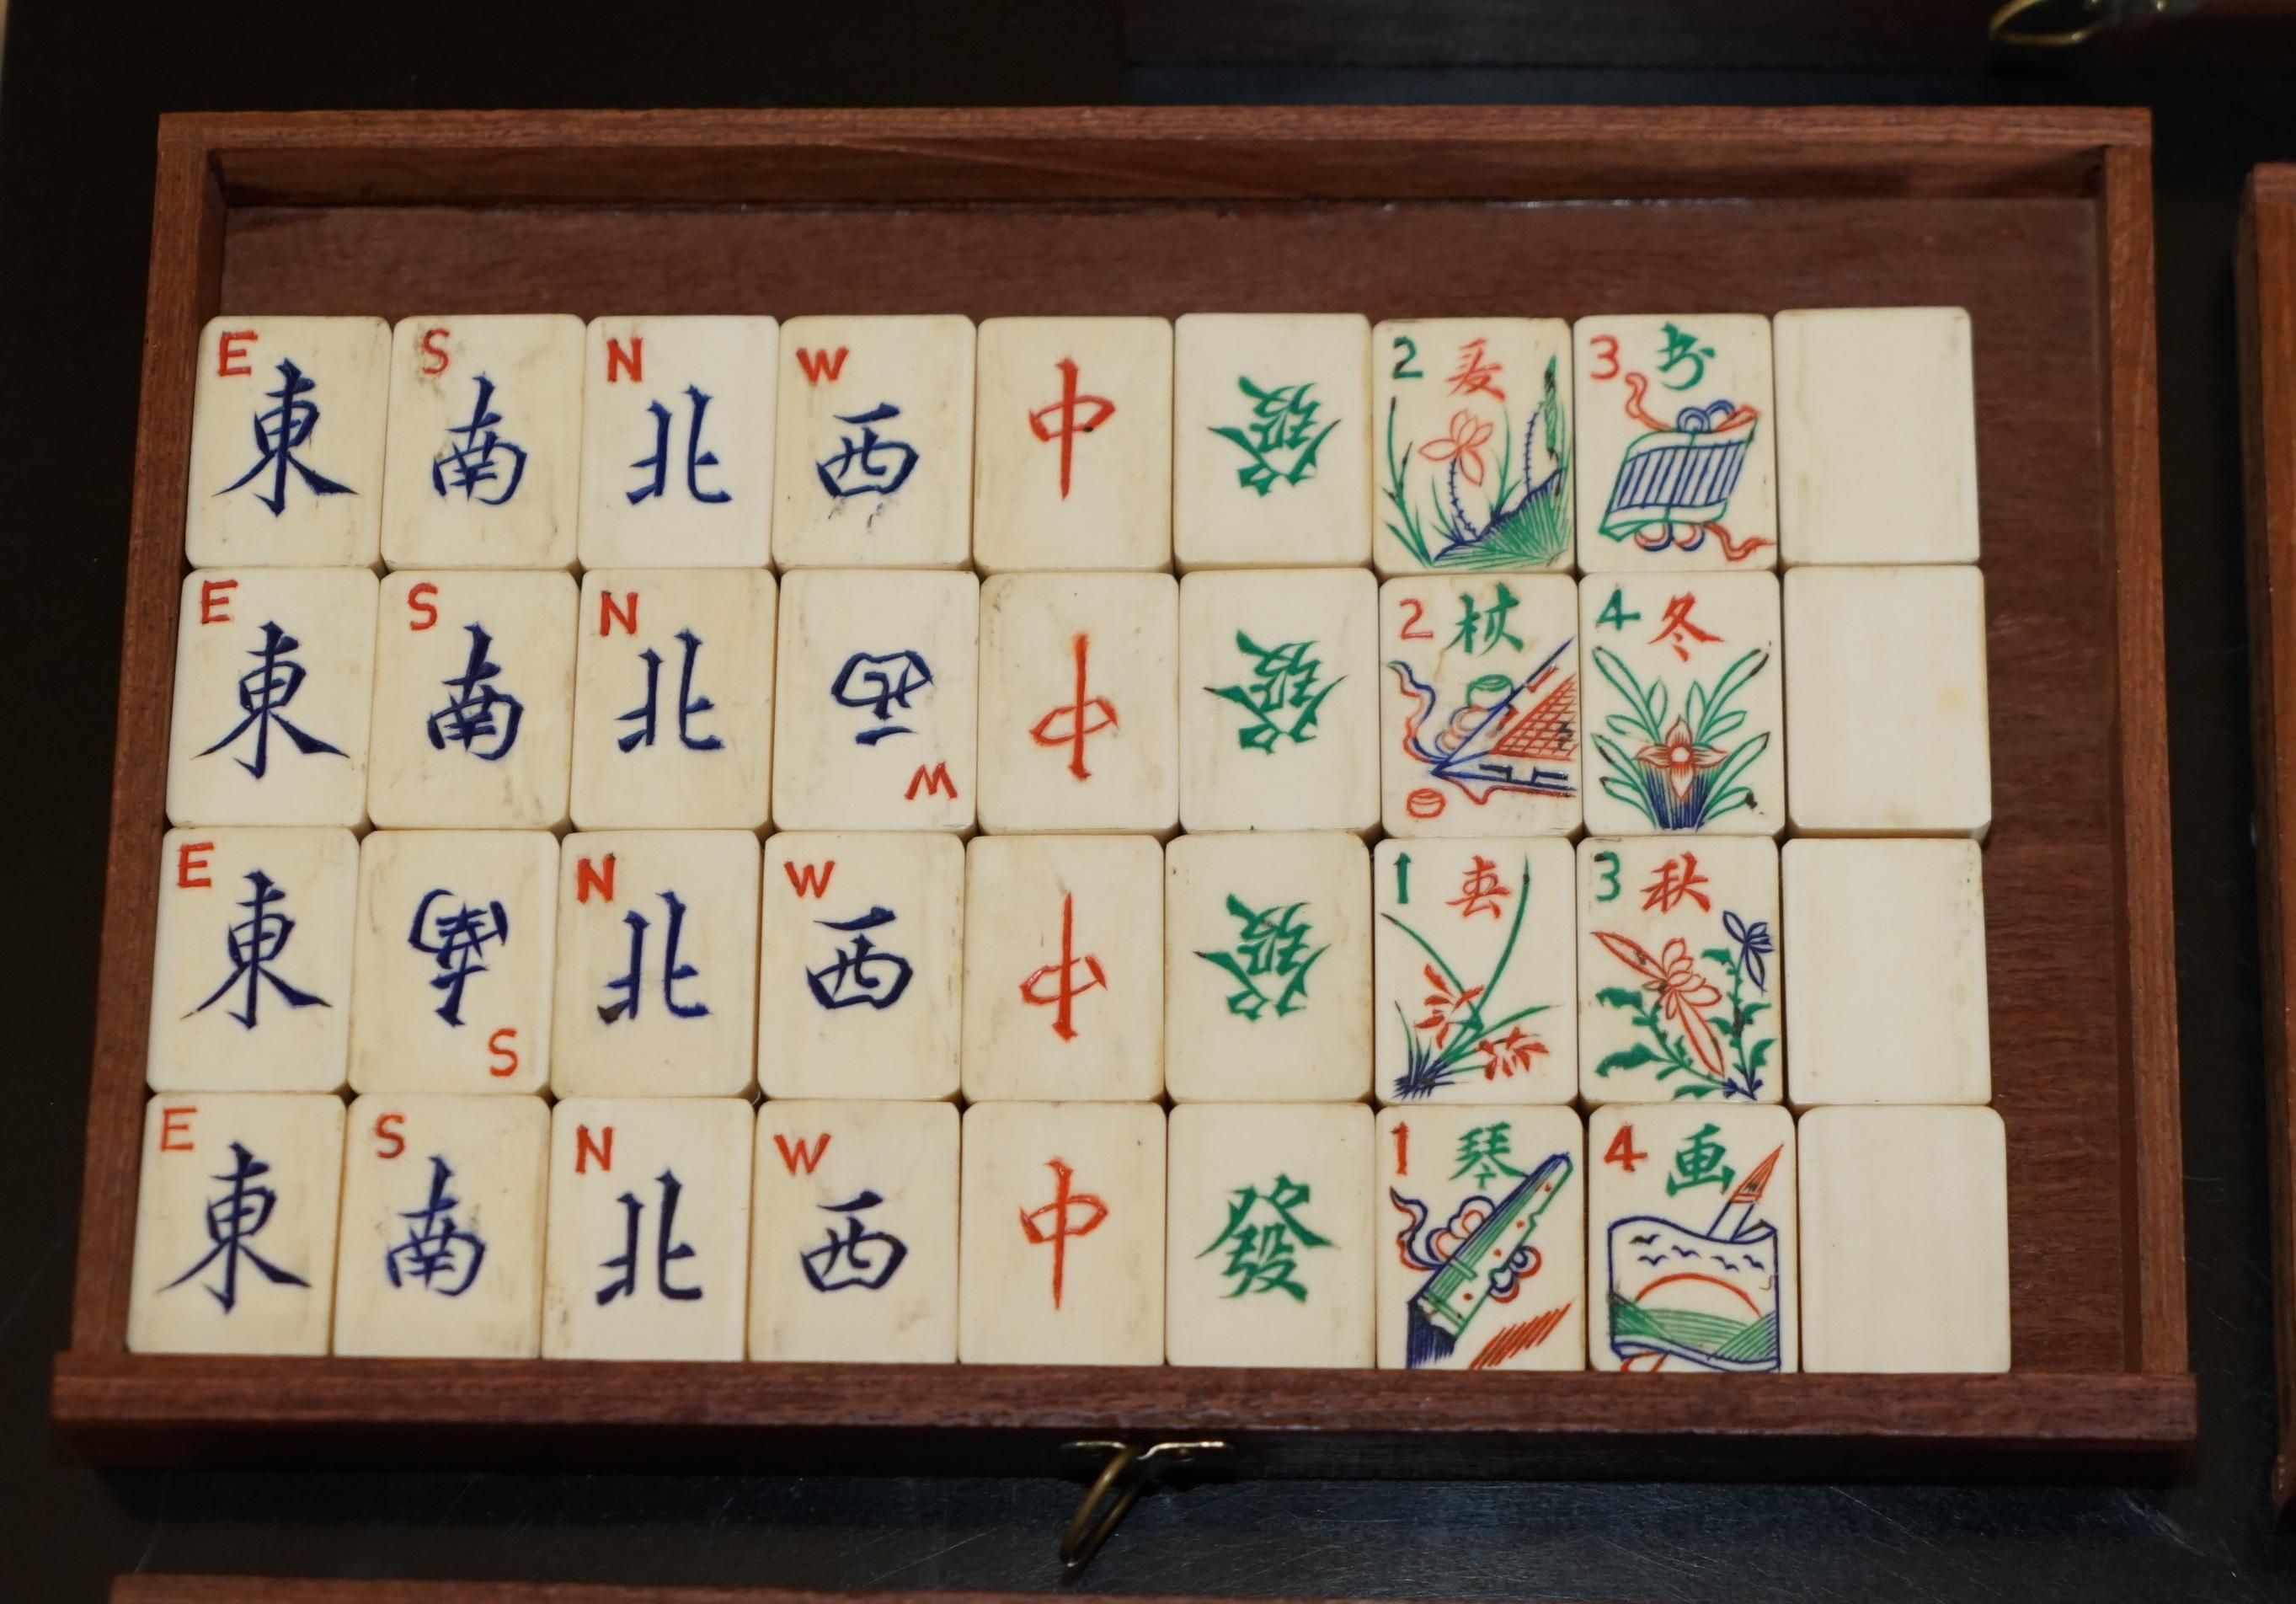 E 東 S 南 N 北 W 西 中 發 2 夏 3 书
E 東 S 南 N 北 W 西 中 發 2 杖 4 冬
E 東 S 南 N 北 W 西 中 發 1 春 3 秋
E 東 S 南 N 北 W 西 中 發 1 琴 4 画